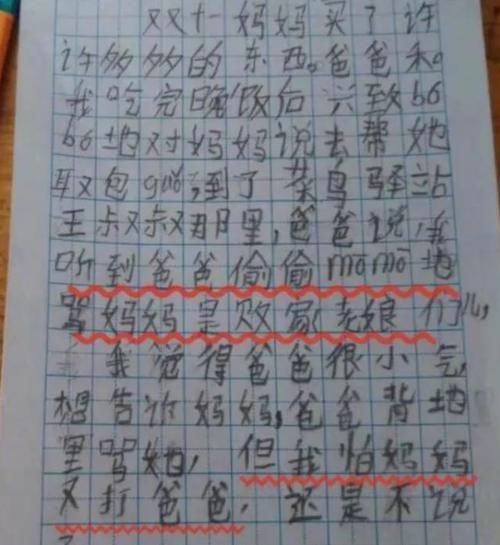 双十一妈妈买了许
许多多的东西。爸爸和
我吃完晚饭后兴致bó
bó地对妈妈说去帮她
取包guǒ,到了菜鸟驿站
王叔叔那里,爸爸说,我
听到爸爸偷偷mōmō地
骂妈妈是败家老娘们儿,
我觉得爸爸很小气,
想告诉妈妈,爸爸背地
里骂她,但我怕妈妈
又打爸爸,还是不说